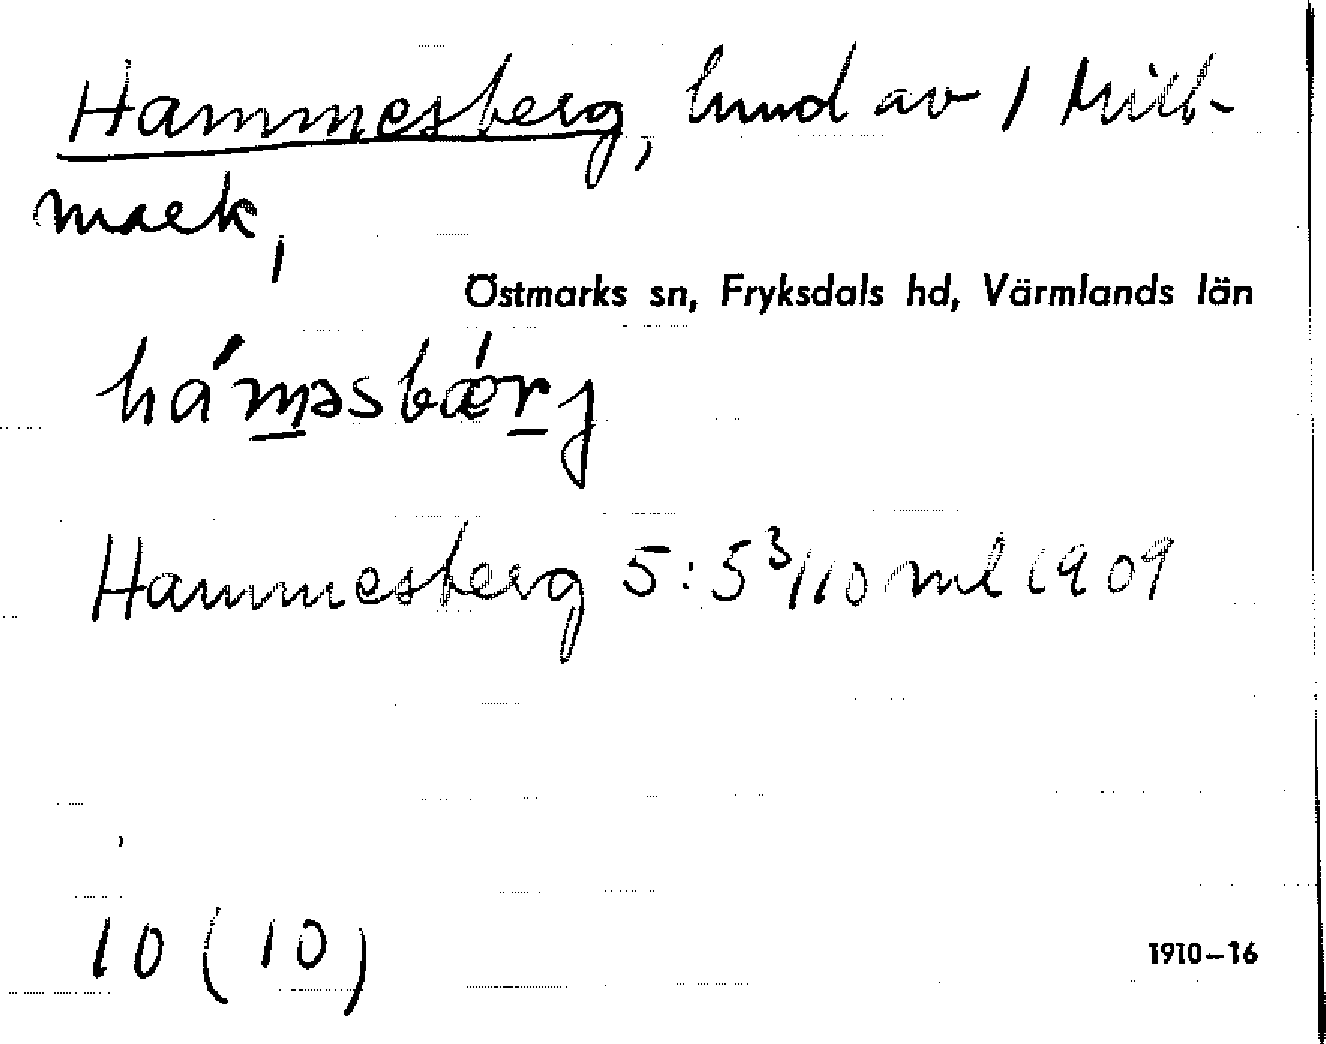 Hammesberg, lund av 1 Mitt-
mark,
Östmarks sn, Fryksdals hd, Värmlands län
há́m̲əsbǽr̲j
Hammesberg 5:5 3/10 ml 1909
10 (10)
1910–16